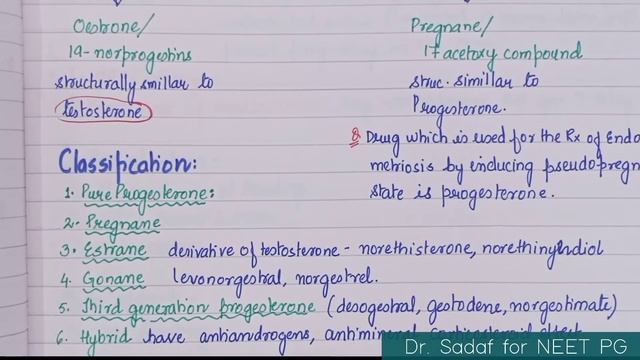 Oestrone/
19-norprogestins
structurally smillar to
testosterone
Pregnane/
17 acetoxy compound
struc. simillar to
Progesterone.
Q Drug which is used for the Rx of Endo
metriosis by inducing pseudopregn
state is progesterone.
Classification:
1. Pure Progesterone:
2. Pregnane
3. Estrane derivative of testosterone - norethisterone, norethinyndiol
4. Gonane levonorgestral, norgestrel.
5. Third generation progesterone (desogestral, gestodene, norgestimate)
6. Hybrid have antiandrogens,
Dr. Sadaf for NEET PG